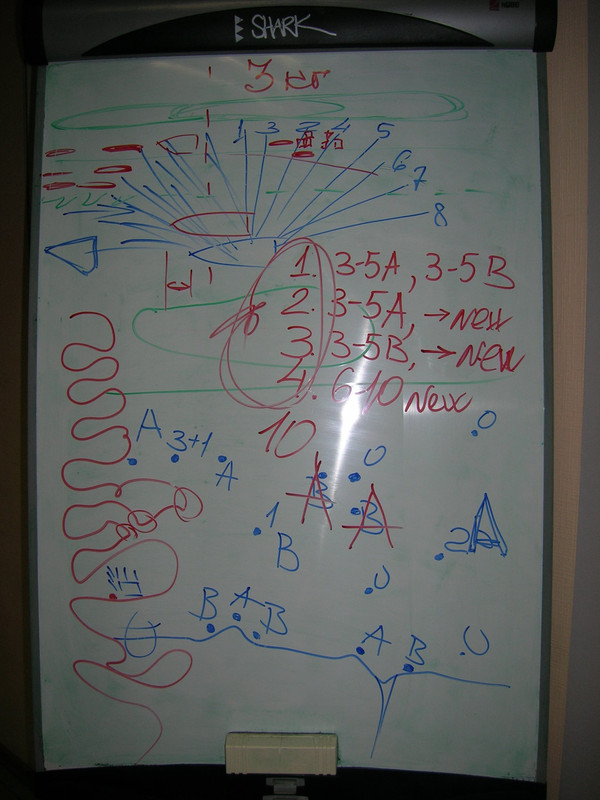 SHARK
3 кг
1 3 2 4 5
6
7
8
1. 3-5A, 3-5B
2. 3-5A, → New
3. 3-5B, → New
4. 6-10 New
10
A 3+1 A
O
O
B
A
B
1 B
2
A
O
B A B
A B
O